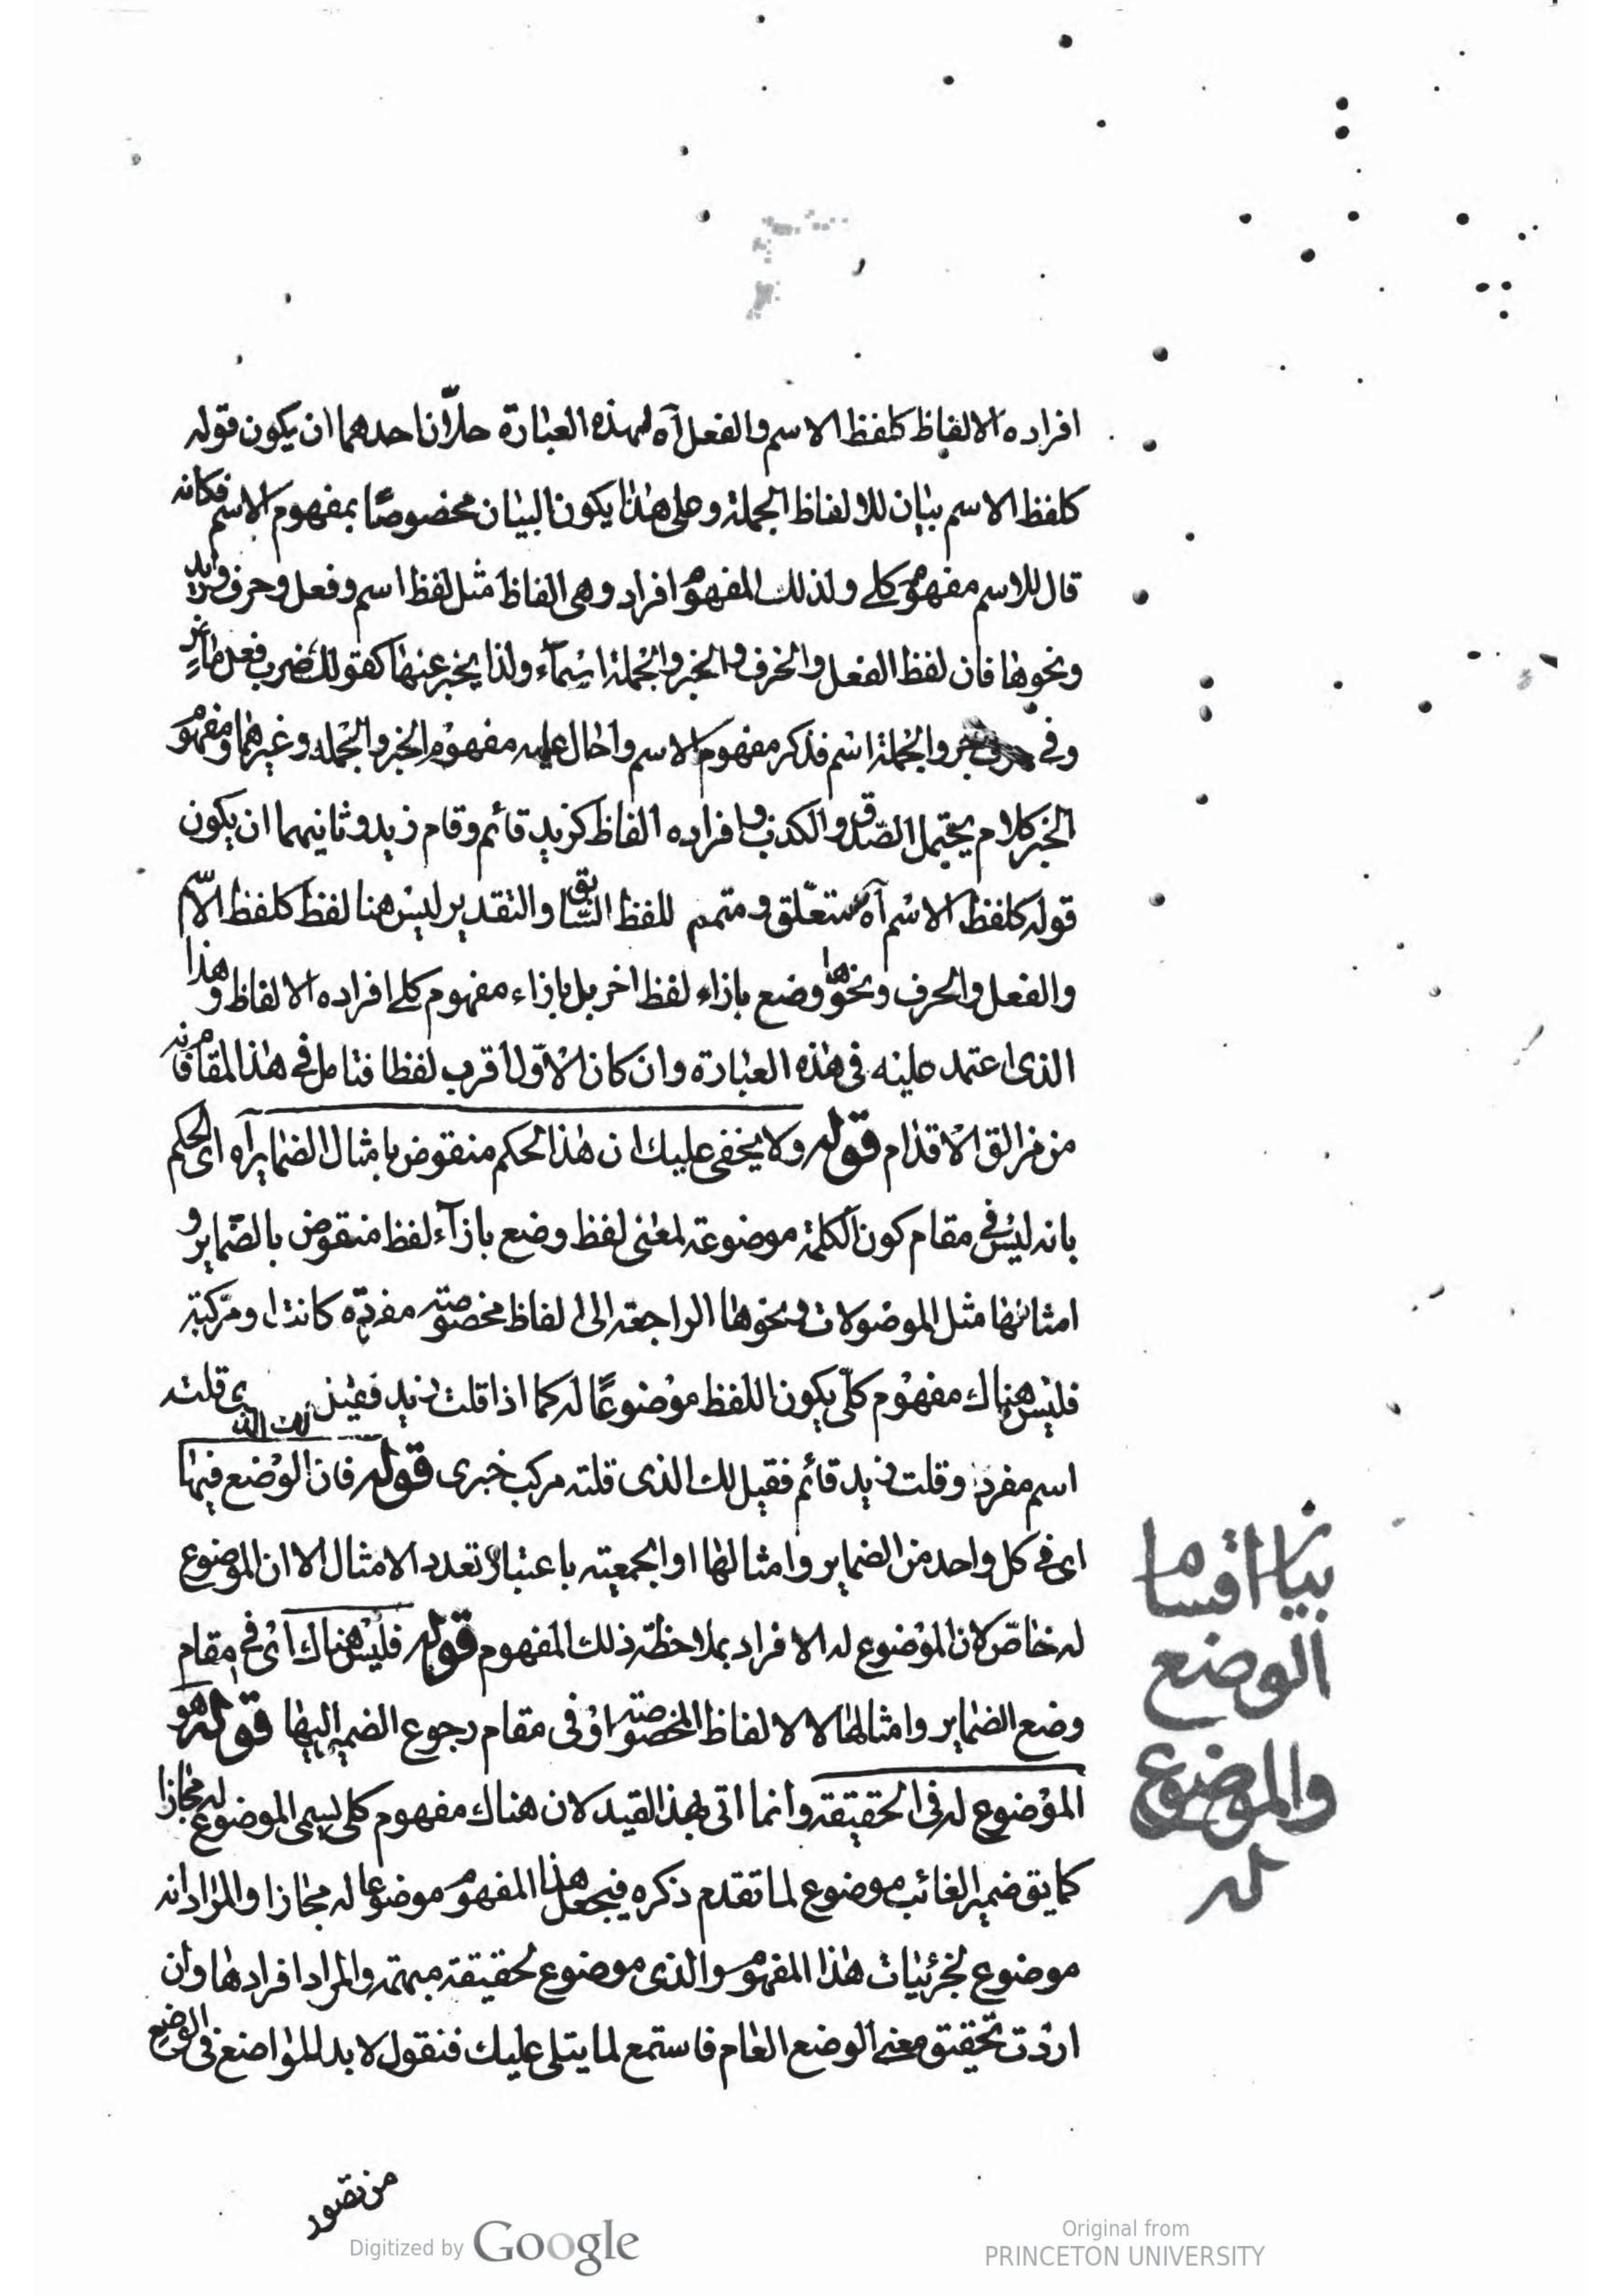 افراده الالفاظ كلفظ الاسم والفعل آه لهذه العبارة حلّان احدهما ان يكون قوله
كلفظ الاسم بيان للالفاظ الجملة وعلى هذا يكون البيان مخصوصًا بمفهوم الاسم فكانه
قال للاسم مفهوم كلي ولذلك المفهوم افراد وهي الفاظ مثل لفظ اسم وفعل وحرف وزيد
ونحوها فان لفظ الفعل والحرف والخبر والجملة اسمآء ولذا يخبر عنها كقولك ضرب فعل ماض
وفي حرف جر والجملة اسم فذكر مفهوم الاسم واحال عليه مفهوم الخبر والجملة وغيرهما ومفهوم
الخبر كلام يحتمل الصدق والكذب وافراده الفاظ كزيد قائم وقام زيد وثانيهما ان يكون
قوله كلفظ الاسم آه متعلّق ومتمم للفظ السابق والتقدير ليس هنا لفظ كلفظ الاسم
والفعل والحرف ونحوها وضع بازاء لفظ اخر بل بازاء مفهوم كلي افراده الالفاظ وهذا
الذي اعتمد عليه في هذه العبارة وان كان الاوّل اقرب لفظا فتامل في هذا المقام فانه
من مزالق الاقدام قوله ولا يخفى عليك ان هذا الحكم منقوض بامثال الضماير آه اى الحكم
بانه ليس في مقام كون الكلمة موضوعة لمعنى لفظ وضع بازآء لفظ منقوض بالضماير و
امثالها مثل الموصولات ونحوها الراجعة الى الفاظ مخصوصة مفردة كانت او مركبة
فليس هناك مفهوم كلّي يكون اللفظ موضوعًا له كما اذا قلت زيد فقيل لك الذى قلته
اسم مفرد وقلت زيد قائم فقيل لك الذى قلته مركب خبرى قوله فان الوضع فيها
اى في كل واحد من الضماير وامثالها او الجمعية باعتبار تعدد الامثال الا ان الموضوع
له خاصّ لان الموضوع له الافراد بملاحظة ذلك المفهوم قوله فليس هناك اى في مقام
وضع الضماير وامثالها لا الالفاظ المخصوصة او في مقام رجوع الضمير اليها قوله هو
الموضوع له في الحقيقة وانما اتى بهذا القيد لان هناك مفهوم كلي يسمى الموضوع له مجازا
كما يق ضمير الغائب موضوع لما تقدم ذكره فيجعل هذا المفهوم موضوعا له مجازا والمراد انه
موضوع لجزئيات هذا المفهوم والذى موضوع لحقيقة مبهمة والمراد افرادها وان
اردت تحقيق معنى الوضع العام فاستمع لما يتلى عليك فنقول لابد للواضع في الوضع
من تصور
بيان اقسام
الوضع
والموضوع
له
Digitized by Google
Original from
PRINCETON UNIVERSITY